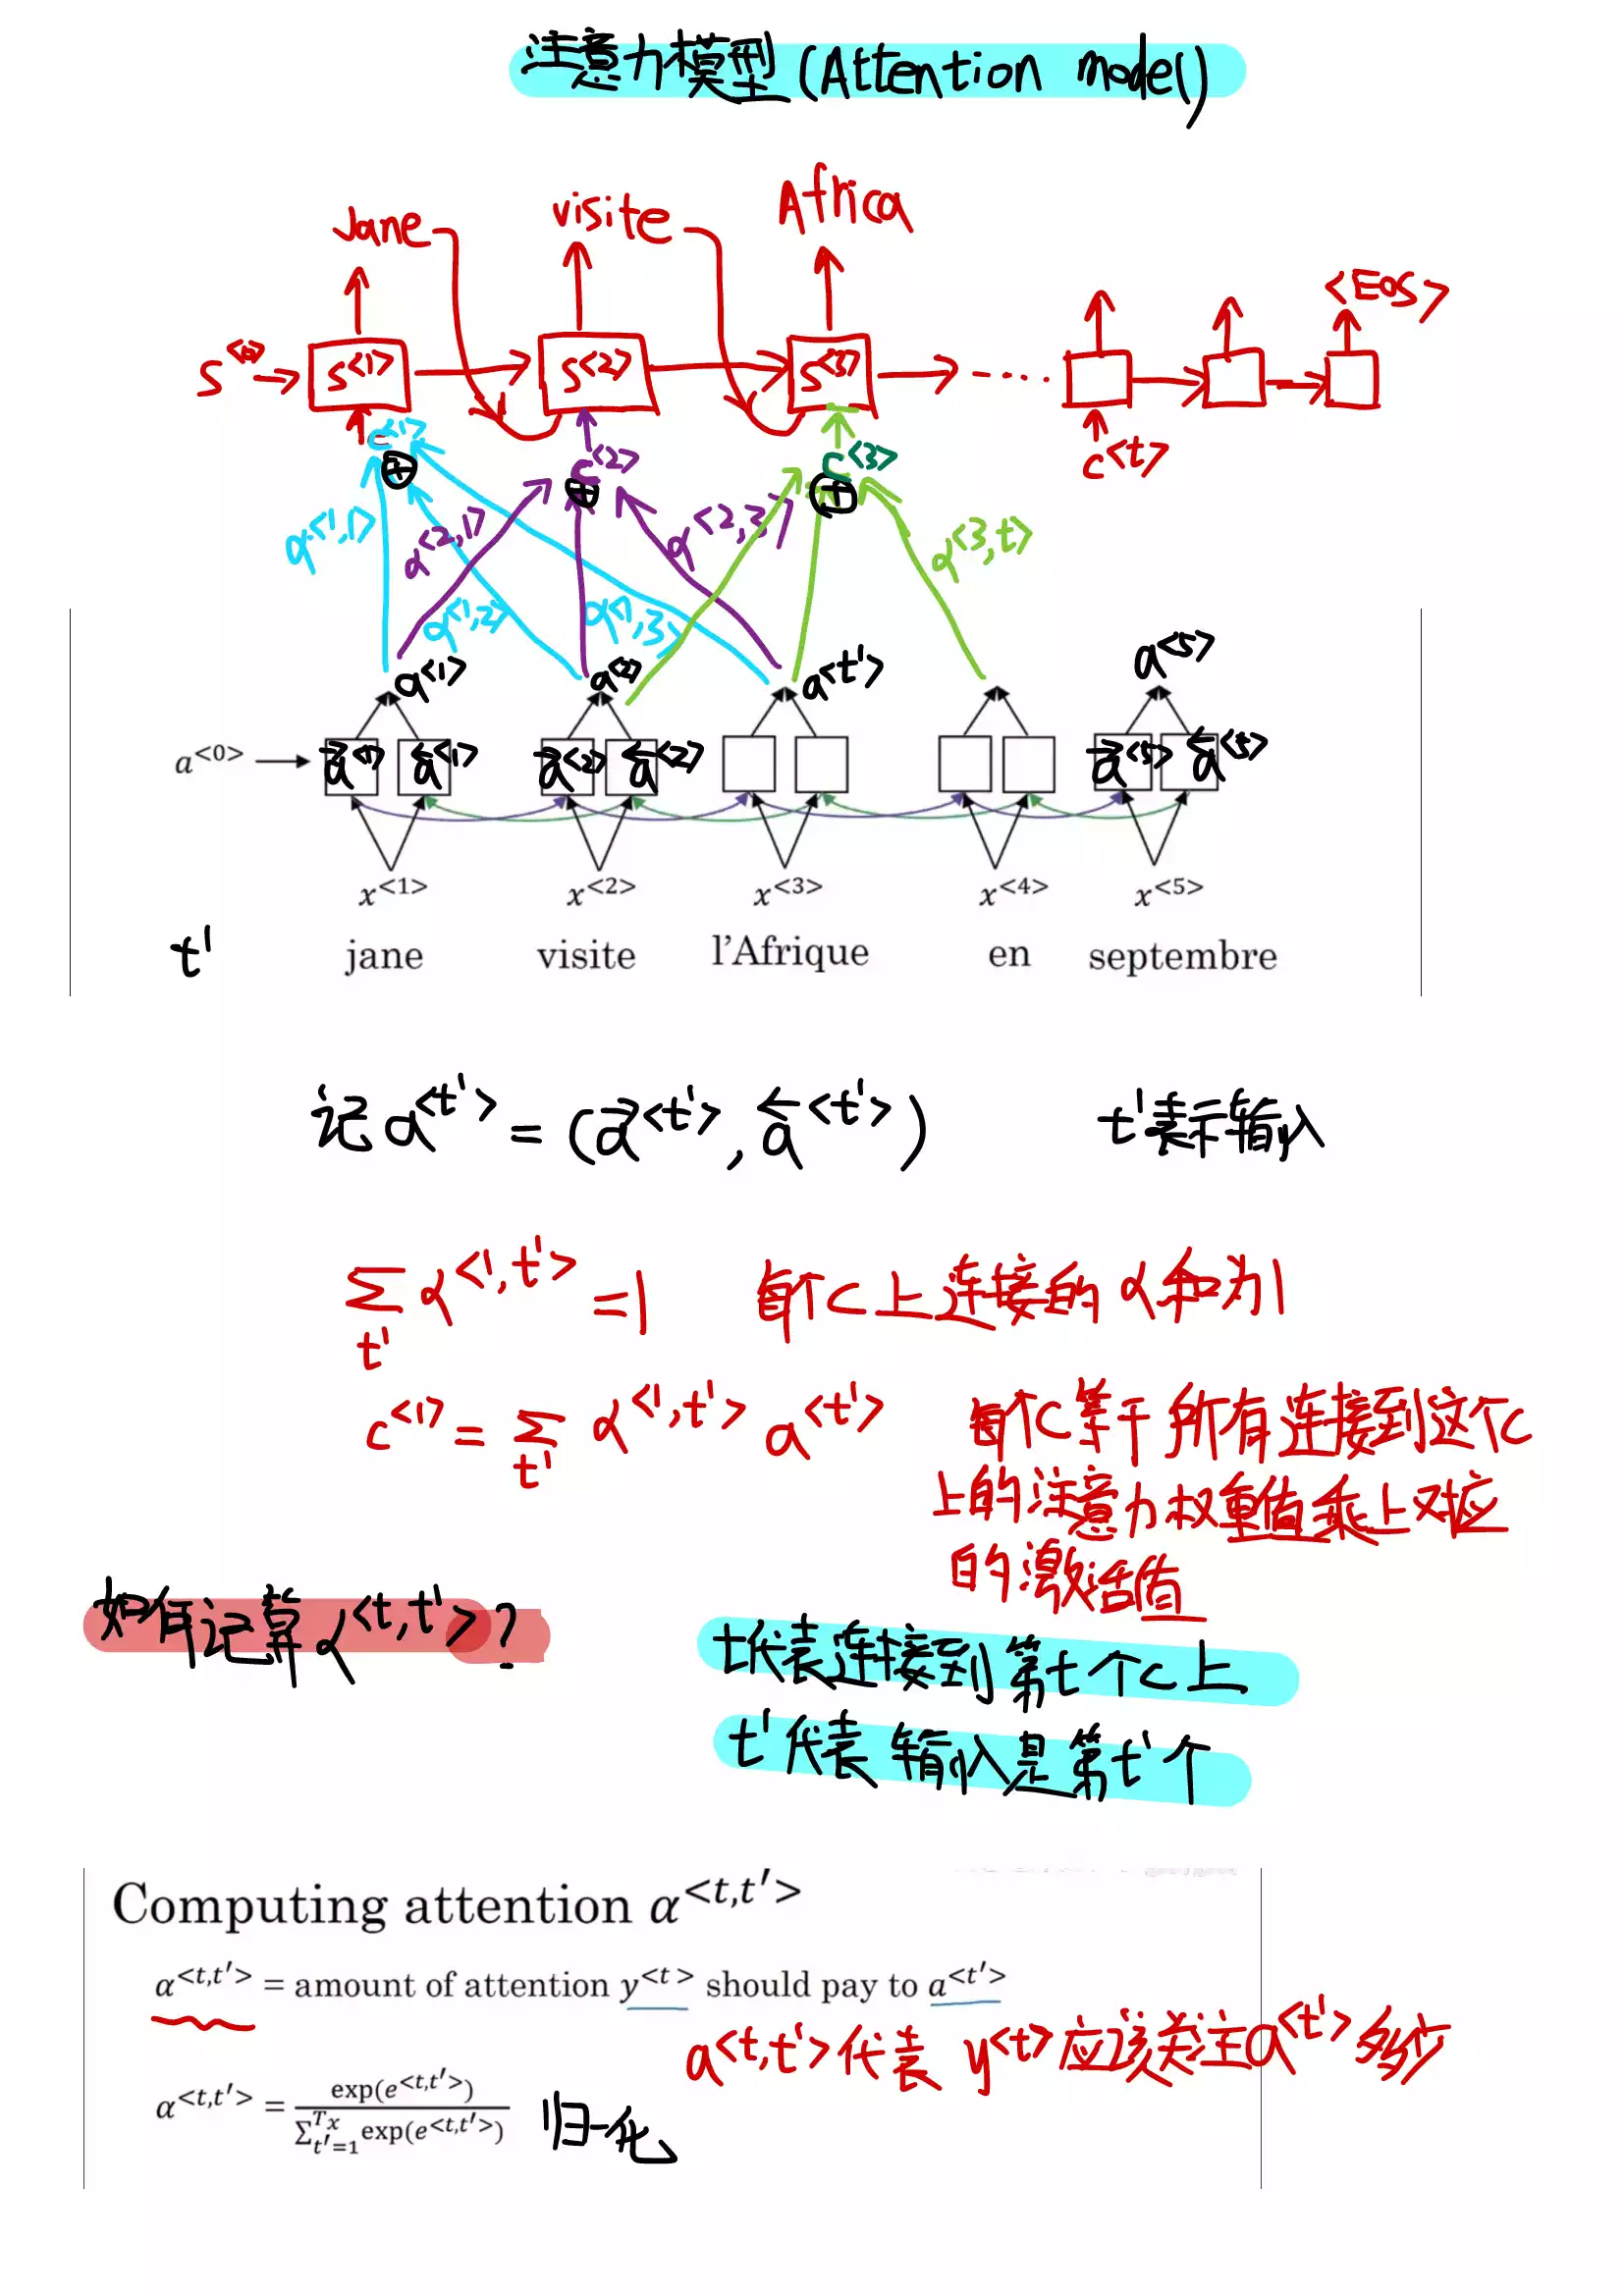 注意力模型(Attention model)
Jane visite Africa
<EOS>
S^<0> S^<1> S^<2> S^<3>
c^<1> c^<2> c^<3> c^<t>
α^<1,1> α^<2,1> α^<2,3> α^<3,t>
α^<1,2> α^<1,3>
a^<1> a^<2> a^<t'> a^<5>
a^<0> →a^<1> ←a^<1> →a^<2> ←a^<2> →a^<5> ←a^<5>
x^<1> x^<2> x^<3> x^<4> x^<5>
t' jane visite l'Afrique en septembre
记 a^<t'> = (→a^<t'>, ←a^<t'>) t'表示输入
∑_t' α^<1,t'> = 1 每个C上连接的α和为1
c^<1> = ∑_t' α^<1,t'> a^<t'> 每个C等于所有连接到这个C
上的注意力权重值乘上对应
的激活值
如何记算α^<t,t'>?
t代表连接到第t个C上
t'代表输入是第t'个
Computing attention α^<t,t'>
α^<t,t'> = amount of attention y^<t> should pay to a^<t'>
a^<t,t'>代表 y^<t>应该关注a^<t'>多少
α^<t,t'> = exp(e^<t,t'>) / ∑_{t'=1}^{Tx} exp(e^<t,t'>) 归一化